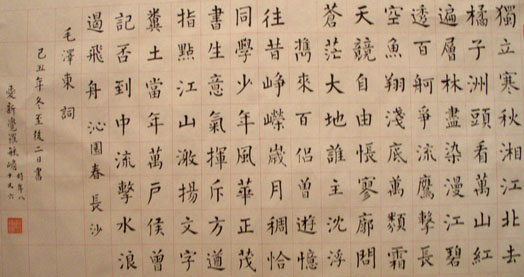 獨立寒秋湘江北去
橘子洲頭看萬山紅
遍層林盡染漫江碧
透百舸爭流鷹擊長
空魚翔淺底萬類霜
天競自由悵寥廓問
蒼茫大地誰主沈浮
攜來百侶曾遊憶
往昔崢嶸歲月稠恰
同學少年風華正茂
書生意氣揮斥方遒
指點江山激揚文字
糞土當年萬戶侯曾
記否到中流擊水浪
遏飛舟 沁園春 長沙
毛澤東 詞
己丑年冬至後二日書
愛新覺羅毓嶦 時年八十又六